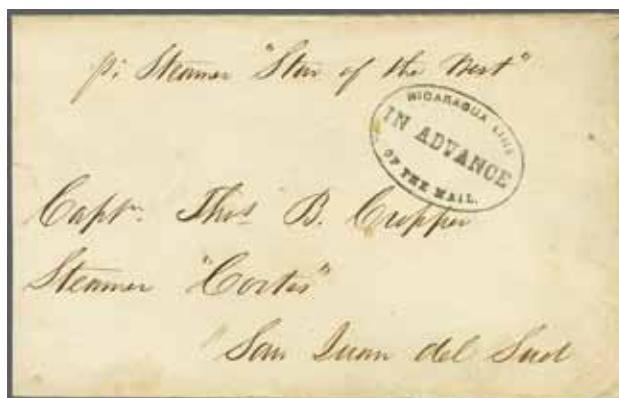 pr Steamer "Star of the West"
NICARAGUA LINE
IN ADVANCE
OF THE MAIL.
Captn. Thos B. Cropper
Steamer "Cortes"
San Juan del Sud